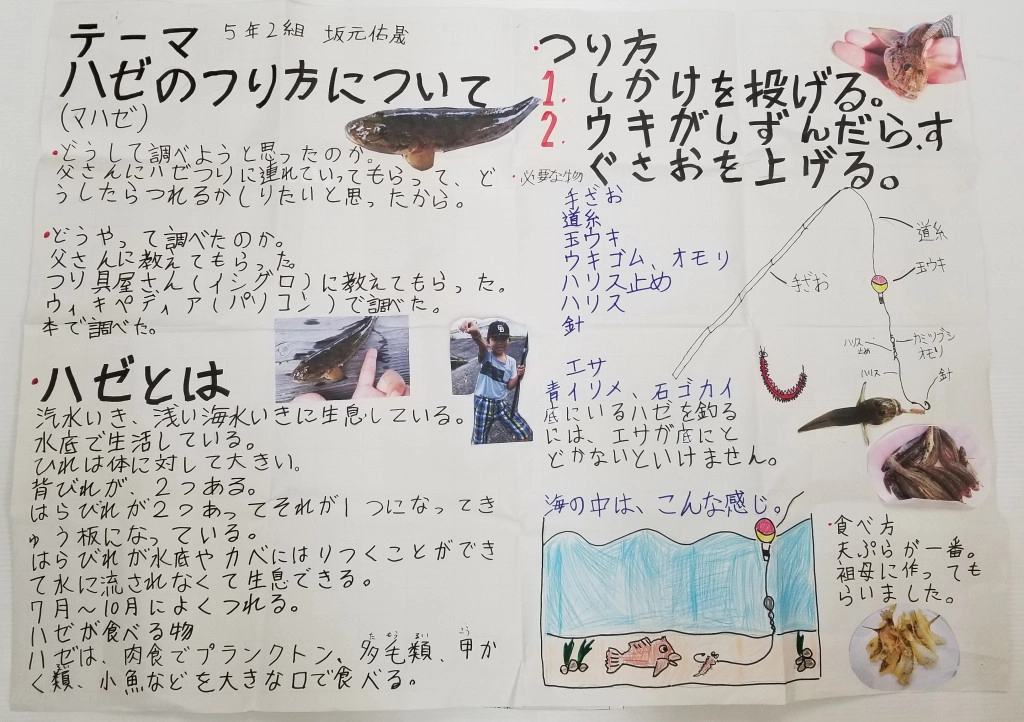 テーマ 5年2組 坂元佑晟
ハゼのつり方について
(マハゼ)
・どうして調べようと思ったのか。
父さんにハゼつりに連れていってもらって、ど
うしたらつれるかしりたいと思ったから。
・どうやって調べたのか。
父さんに教えてもらった。
つり具屋さん(イシグロ)に教えてもらった。
ウィキペディア(パソコン)で調べた。
本で調べた。
・ハゼとは
汽水いき、浅い海水いきに生息している。
水底で生活している。
ひれは体に対して大きい。
背びれが、2つある。
はらびれが2つあってそれが1つになってき
ゅう板になっている。
はらびれが水底やカベにはりつくことができ
て水に流されなくて生息できる。
7月～10月によくつれる。
ハゼが食べる物
ハゼは、肉食でプランクトン、多毛類、甲か
く類、小魚などを大きな口で食べる。
・つり方
1. しかけを投げる。
2. ウキがしずんだら、す
ぐさおを上げる。
・必要な物
手ざお
道糸
玉ウキ
ウキゴム、オモリ
ハリス止め
ハリス
針
エサ
青イソメ、石ゴカイ
底にいるハゼを釣る
には、エサが底にと
どかないといけません。
道糸
玉ウキ
手ざお
カミツブシ
オモリ
ハリス
止め
ハリス
針
海の中は、こんな感じ。
・食べ方
天ぷらが一番。
祖母に作っても
らいました。